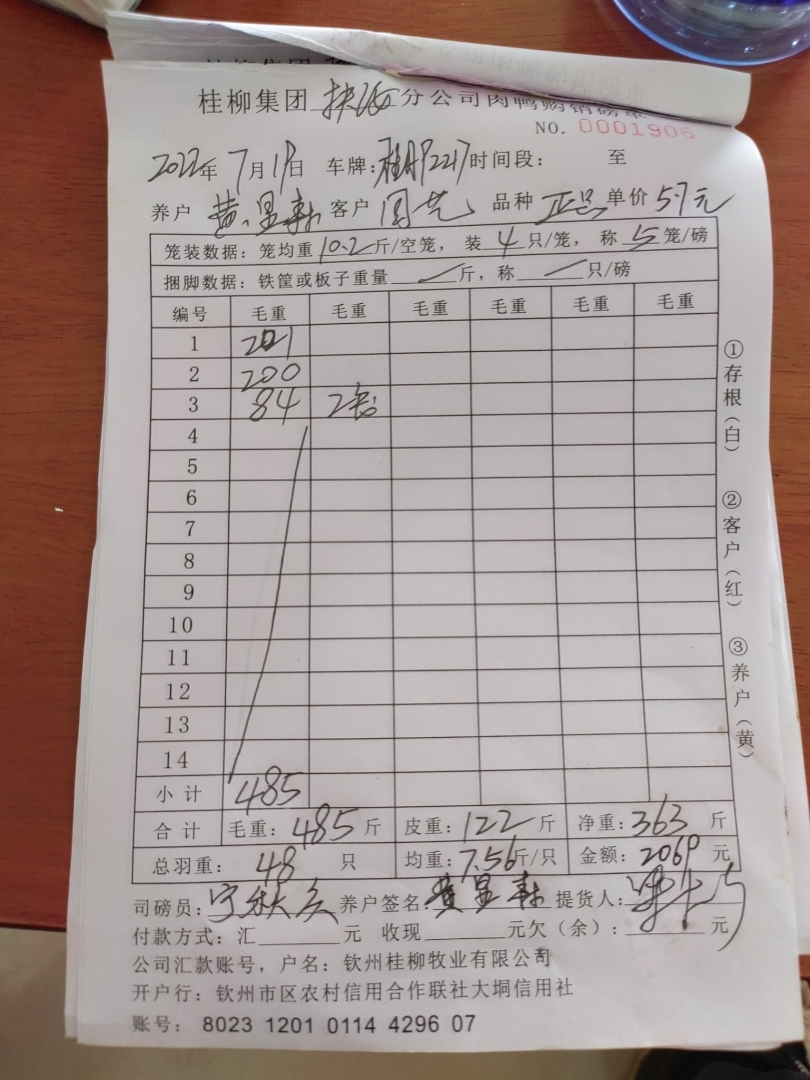 桂柳集团 分公司肉鸭购销磅单
NO. 0001906
2022年7月19日 车牌: 时间段: 至
养户 黄显 客户 国艺 品种 正品 单价 5.7元
笼装数据: 笼均重10.2斤/空笼, 装4只/笼, 称5笼/磅
捆脚数据: 铁筐或板子重量 斤, 称 只/磅
编号 毛重 毛重 毛重 毛重 毛重 毛重
1 201
2 200
3 84 2笼
4
5
6
7
8
9
10
11
12
13
14
小计 485
合计 毛重: 485斤 皮重: 122斤 净重: 363斤
总羽重: 48只 均重: 7.56斤/只 金额: 2069元
司磅员: 宁 养户签名: 黄显 提货人:
付款方式: 汇 元 收现 元欠（余）: 元
公司汇款账号, 户名: 钦州桂柳牧业有限公司
开户行: 钦州市区农村信用合作联社大垌信用社
账号: 8023 1201 0114 4296 07
①存根（白）
②客户（红）
③养户（黄）